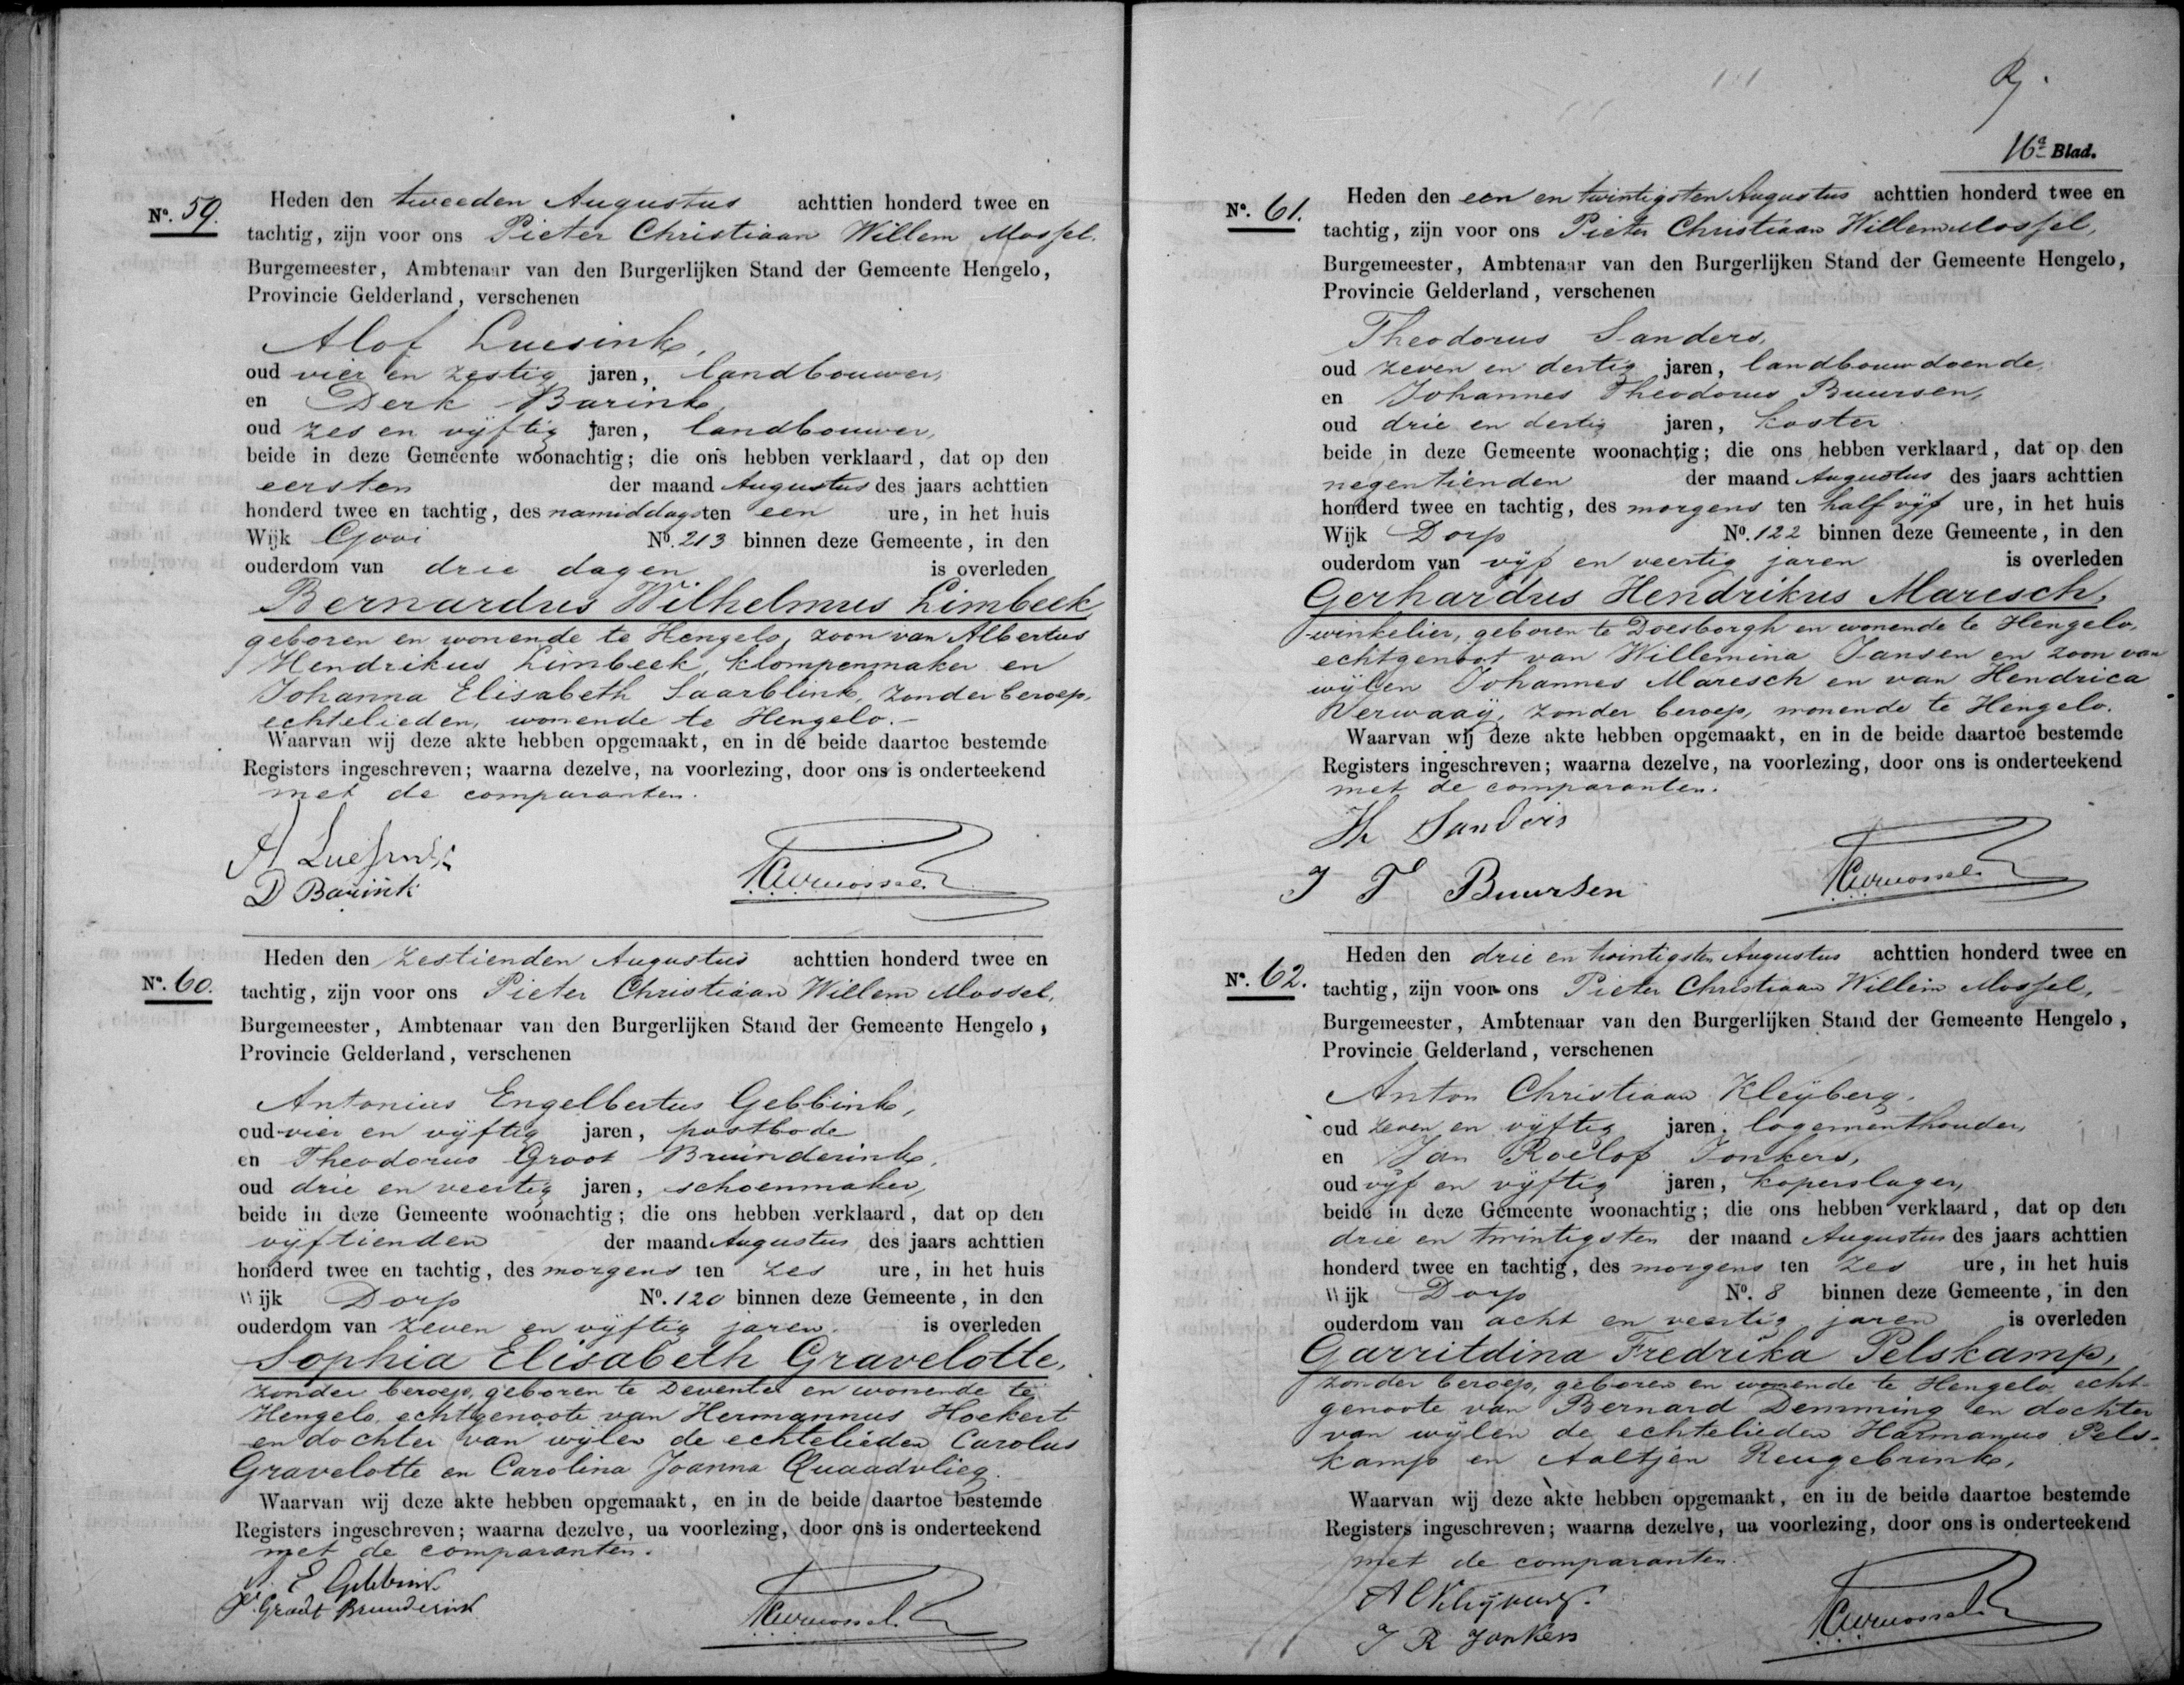 Nº. 59.
Heden den tweeden Augustus achttien honderd twee en
tachtig, zijn voor ons Pieter Christiaan Willem Mossel.
Burgemeester, Ambtenaar van den Burgerlijken Stand der Gemeente Hengelo,
Provincie Gelderland, verschenen
Alof Luesink,
oud vier en zestig jaren, landbouwer,
en Derk Barink
oud zes en vijftig jaren, landbouwer,
beide in deze Gemeente woonachtig; die ons hebben verklaard, dat op den
eersten der maand Augustus des jaars achttien
honderd twee en tachtig, des namiddags ten een ure, in het huis
Wijk Gooi Nº. 213 binnen deze Gemeente, in den
ouderdom van drie dagen is overleden
Bernardus Wilhelmus Limbeek
geboren en wonende te Hengelo, zoon van Albertus
Hendrikus Limbeek, klompenmaker en
Johanna Elisabeth Saarblink, zonder beroep,
echtelieden, wonende te Hengelo.-
Waarvan wij deze akte hebben opgemaakt, en in de beide daartoe bestemde
Registers ingeschreven; waarna dezelve, na voorlezing, door ons is onderteekend
met de comparanten.
A Luesink
D Barink
PCWMossel
Nº. 60.
Heden den zestienden Augustus achttien honderd twee en
tachtig, zijn voor ons Pieter Christiaan Willem Mossel,
Burgemeester, Ambtenaar van den Burgerlijken Stand der Gemeente Hengelo,
Provincie Gelderland, verschenen
Antonius Engelbertus Gebbink,
oud vier en vijftig jaren, postbode
en Theodorus Groot Bruinderink,
oud drie en veertig jaren, schoenmaker,
beide in deze Gemeente woonachtig; die ons hebben verklaard, dat op den
vijftienden der maand Augustus des jaars achttien
honderd twee en tachtig, des morgens ten zes ure, in het huis
Wijk Dorp Nº. 120 binnen deze Gemeente, in den
ouderdom van zeven en vijftig jaren. is overleden
Sophia Elisabeth Gravelotte,
zonder beroep, geboren te Deventer en wonende te
Hengelo, echtgenoote van Hermannus Hoekert
en dochter van wijlen de echtelieden Carolus
Gravelotte en Carolina Joanna Quaadvlieg.
Waarvan wij deze akte hebben opgemaakt, en in de beide daartoe bestemde
Registers ingeschreven; waarna dezelve, ua voorlezing, door ons is onderteekend
met de comparanten.
A. E Gebbink
Th. Groot Bruinderink
PCWMossel
16e Blad.
Nº. 61.
Heden den een en twintigsten Augustus achttien honderd twee en
tachtig, zijn voor ons Pieter Christiaan Willem Mossel,
Burgemeester, Ambtenaar van den Burgerlijken Stand der Gemeente Hengelo,
Provincie Gelderland, verschenen
Theodorus Sanders,
oud zeven en dertig jaren, landbouw doende,
en Johannes Theodorus Buursen,
oud drie en dertig jaren, koster
beide in deze Gemeente woonachtig; die ons hebben verklaard, dat op den
negentienden der maand Augustus des jaars achttien
honderd twee en tachtig, des morgens ten half vijf ure, in het huis
Wijk Dorp Nº. 122 binnen deze Gemeente, in den
ouderdom van vijf en veertig jaren is overleden
Gerhardus Hendrikus Maresch,
winkelier, geboren te Doesborgh en wonende te Hengelo,
echtgenoot van Willemina Jansen en zoon van
wijlen Johannes Maresch en van Hendrica
Verwaaij, zonder beroep, wonende te Hengelo.
Waarvan wij deze akte hebben opgemaakt, en in de beide daartoe bestemde
Registers ingeschreven; waarna dezelve, na voorlezing, door ons is onderteekend
met de comparanten.
Th Sanders
J T Buursen
PCWMossel
Nº. 62.
Heden den drie en twintigsten Augustus achttien honderd twee en
tachtig, zijn voor ons Pieter Christiaan Willem Mossel,
Burgemeester, Ambtenaar van den Burgerlijken Stand der Gemeente Hengelo,
Provincie Gelderland, verschenen
Anton Christiaan Kleijberg,
oud zeven en vijftig jaren, logementhouder,
en Jan Roelof Jonkers,
oud vijf en vijftig jaren, koperslager,
beide in deze Gemeente woonachtig; die ons hebben verklaard, dat op den
drie en twintigsten der maand Augustus des jaars achttien
honderd twee en tachtig, des morgens ten zes ure, in het huis
Wijk Dorp Nº. 8 binnen deze Gemeente, in den
ouderdom van acht en veertig jaren is overleden
Garritdina Fredrika Pelskamp,
zonder beroep, geboren en wonende te Hengelo, echt-
genoote van Bernard Demming en dochter
van wijlen de echtelieden Harmanus Pels-
kamp en Aaltjen Reugebrink,
Waarvan wij deze akte hebben opgemaakt, en in de beide daartoe bestemde
Registers ingeschreven; waarna dezelve, ua voorlezing, door ons is onderteekend
met de comparanten.
A C Kleijberg.
J R Jonkers
PCWMossel